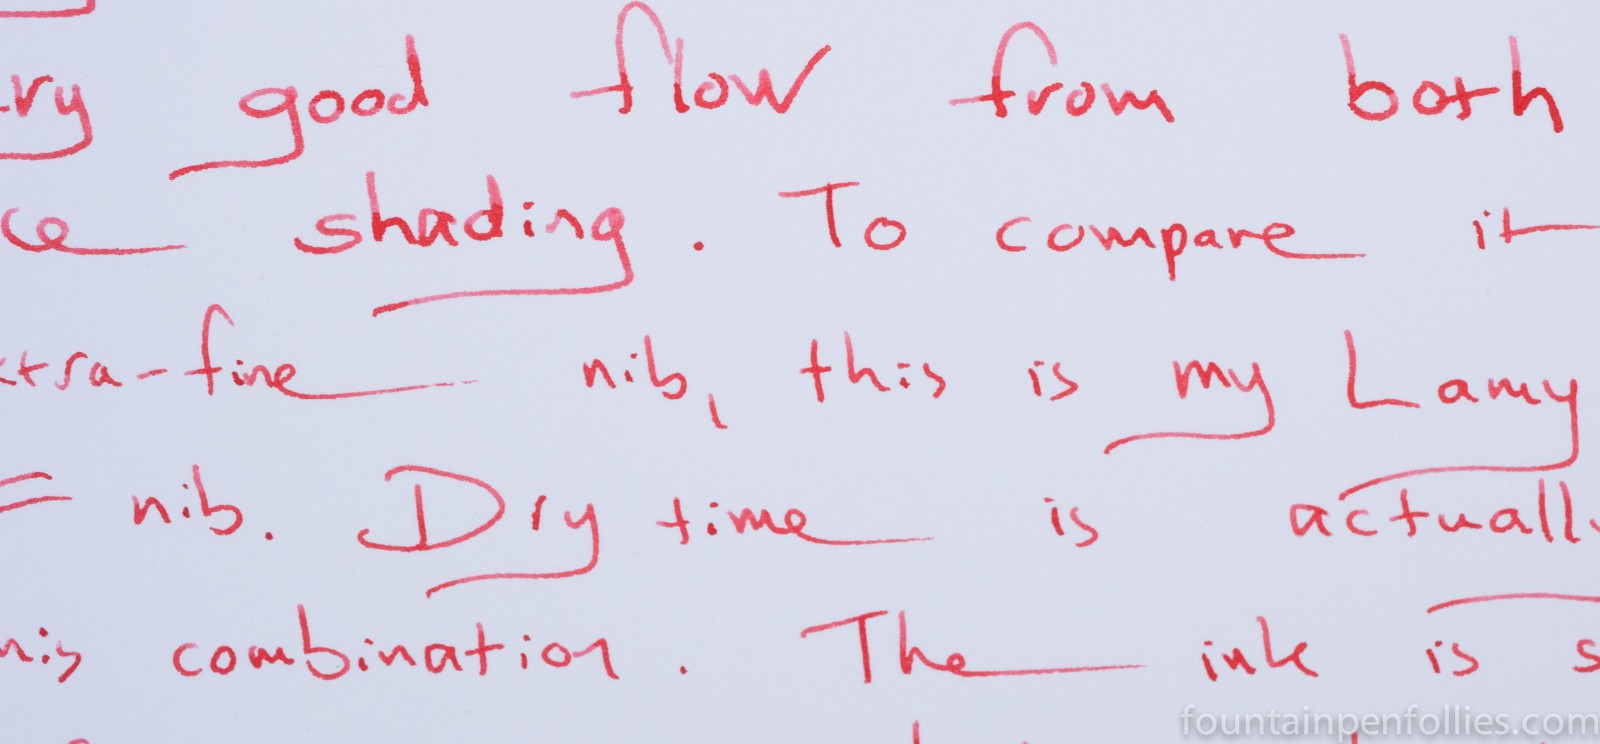 ry good flow from both
ce shading. To compare it
xtra-fine nib, this is my Lamy
= nib. Dry time is actually
his combination. The ink is s
fountainpenfollies.com